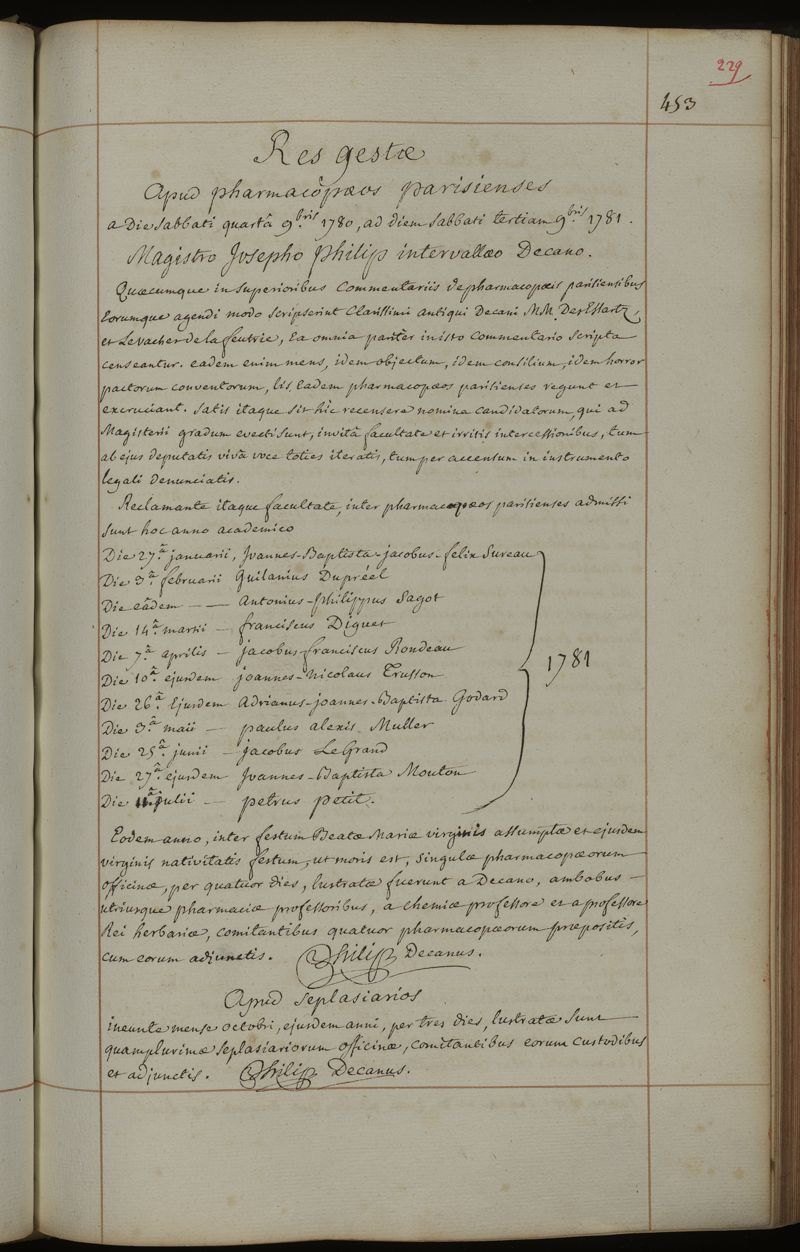 229
453
Res gestæ
Apud pharmacöpæos parisienses
a Die Sabbati quartâ 9.bris 1780, ad diem Sabbati tertiam 9.bris 1781.
Magistro Josepho Philip intervallæo Decano.
Quæcumque in superioribus Commentariis de pharmacopæis parisiensibus
Eorumque agendi modo scripserint Clarissimi antiqui Decani M.M. DesEssartz,
et Levacher de la feutrie, Ea omnia pariter in isto Commentario Scripta
censeantur. eadem enim mens, idem objectum, idem consilium, idem horror
pactorum conventorum, lis Eadem pharmacopæos parisienses regunt et
excruciant. Satis itaque sit hîc recensere nomina Candidatorum, qui ad
Magisterii gradum evecti Sunt, invitâ facultate et irritis intercessionibus, tum
ab ejus deputatis vivâ voce toties iteratis, tum per accensum in instrumento
legali denunciatis.
Reclamante itaque facultate, inter pharmacopæos parisienses admissi
Sunt hoc anno academico
Die 27.â januarii, Joannes-Baptista-jacobus-felix Sureau
Die 3.â februarii Guilanius Dupréel
Die eâdem — — Antonius-philippus Sagot
Die 14.â martii — franciscus Diguet
Die 7.â aprilis — jacobus-franciscus Rondeau
Die 10.â ejusdem joannes-Nicolaus Trusson
Die 26.â Ejusdem Adrianus-joannes-Baptista Godard
Die 3.â maii — paulus alexis Muller
Die 25.â junii — jacobus LeGrand
Die 27.â ejusdem Joannes-Baptista Mouton
Die 11.â julii — petrus petit.
1781
Eodem anno, inter festum Beatæ Mariæ virginis assumptæ et ejusdem
virginis nativitatis festum, ut moris est, Singulæ pharmacopæorum
officinæ, per quatuor dies, lustratæ fuerunt a Decano, ambobus —
utriusque pharmaciæ professoribus, a chemiæ professore et a professore
Rei herbariæ, comitantibus quatuor pharmacopæorum præpositis,
cum eorum adjunctis. Philip Decanus.
Apud Seplasiarios
ineunte mense octobri, ejusdem anni, per tres dies, lustratæ Sunt
quamplurimæ Seplasiariorum officinæ, comitantibus eorum Custodibus
et adjunctis. Philip Decanus.